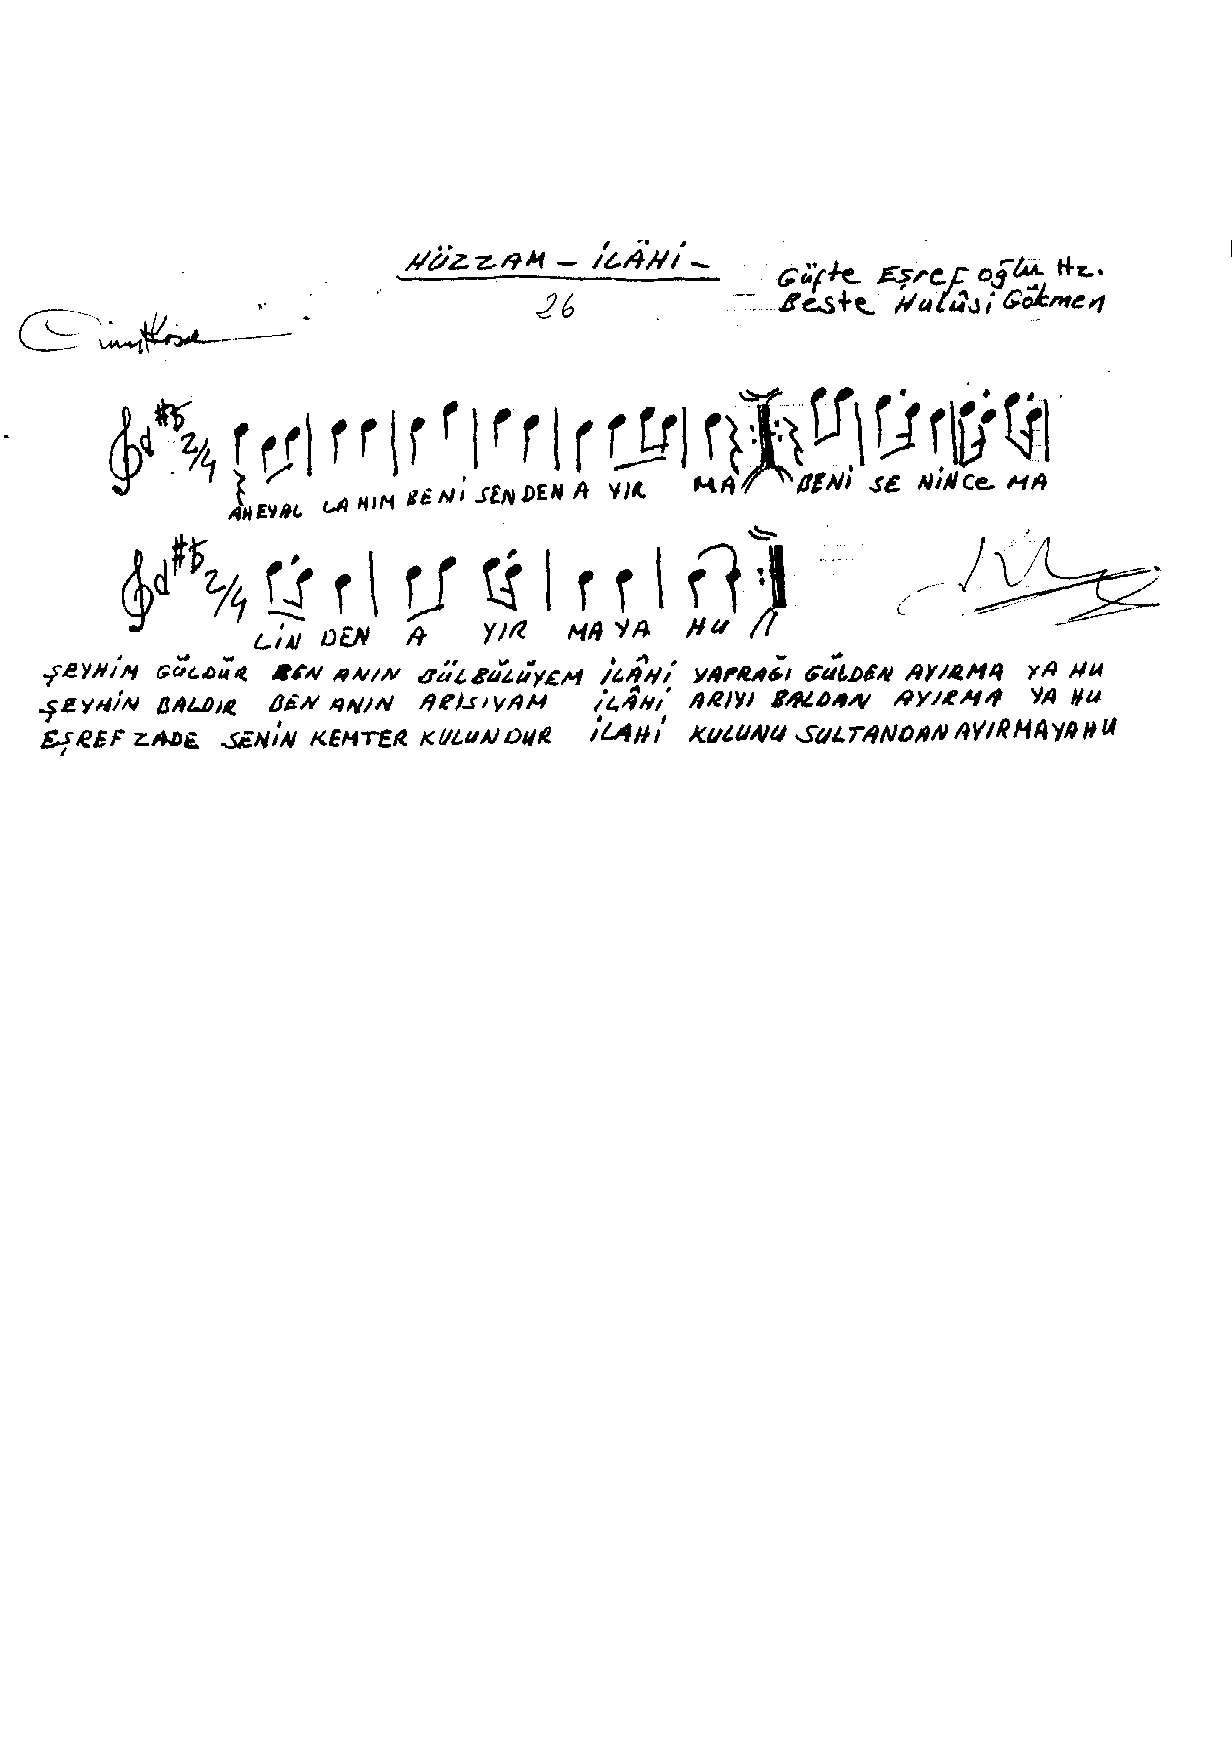 HÜZZAM - İLÂHİ -
Güfte Eşref oğlu Hz.
26
Beste Hulûsi Gökmen
2/4
AH EYAL LA HIM BENİ SENDEN A YIR MA BENİ SE NİNCE MA
2/4
LİN DEN A YIR MA YA HU
ŞEYHİM GÜLDÜR BEN ANIN BÜLBÜLÜYEM İLÂHİ YAPRAĞI GÜLDEN AYIRMA YA HU
ŞEYHİN BALDIR BEN ANIN ARISIYAM İLÂHİ ARIYI BALDAN AYIRMA YA HU
EŞREF ZADE SENİN KEMTER KULUNDUR İLAHİ KULUNU SULTANDAN AYIRMA YA HU